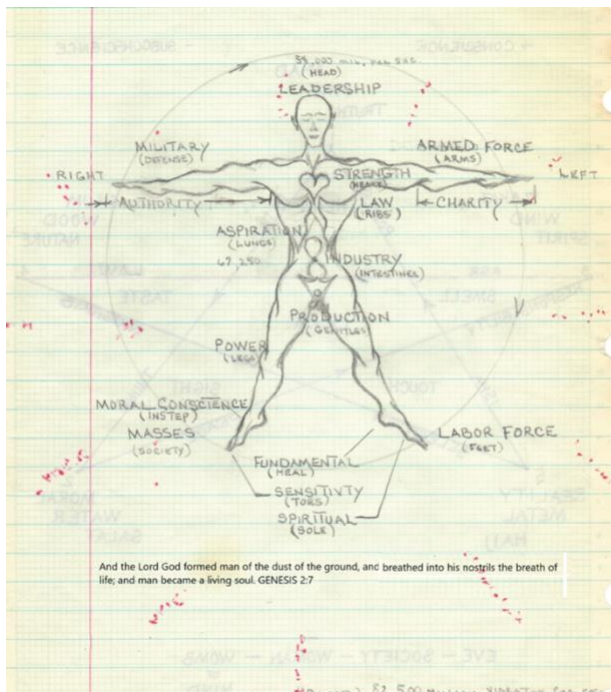 (HEAD)
LEADERSHIP
MILITARY
(DEFENSE)
ARMED FORCE
(ARMS)
RIGHT
STRENGTH
(HEART)
LEFT
AUTHORITY
LAW
(RIBS)
CHARITY
ASPIRATION
(LUNGS)
67,250
INDUSTRY
(INTESTINES)
PRODUCTION
(GENITLES)
POWER
(LEGS)
MORAL CONSCIENCE
(INSTEP)
MASSES
(SOCIETY)
LABOR FORCE
(FEET)
FUNDAMENTAL
(HEAL)
SENSITIVTY
(TOES)
SPIRITUAL
(SOLE)
And the Lord God formed man of the dust of the ground, and breathed into his nostrils the breath of
life; and man became a living soul. GENESIS 2:7